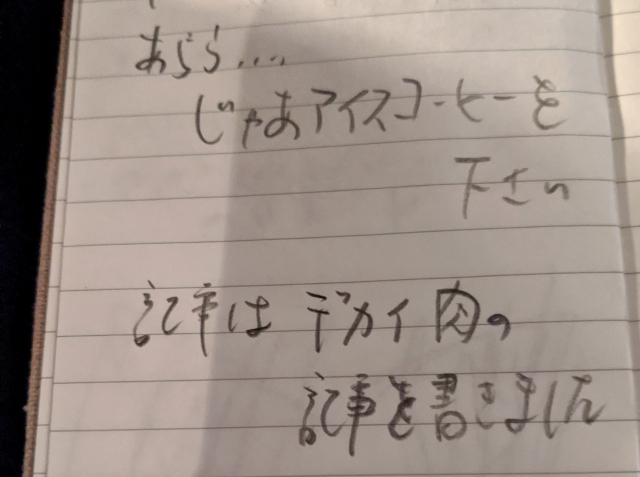 あらら...
じゃあアイスコーヒーを
下さい
記事はデカイ肉の
記事を書きました